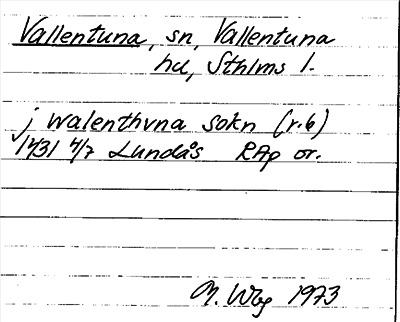 Vallentuna, sn, Vallentuna
hd, Sthlms l.
j walenthvna sokn (r.6)
1431 4/7 Lundås RAp or.
M. Wbg 1973